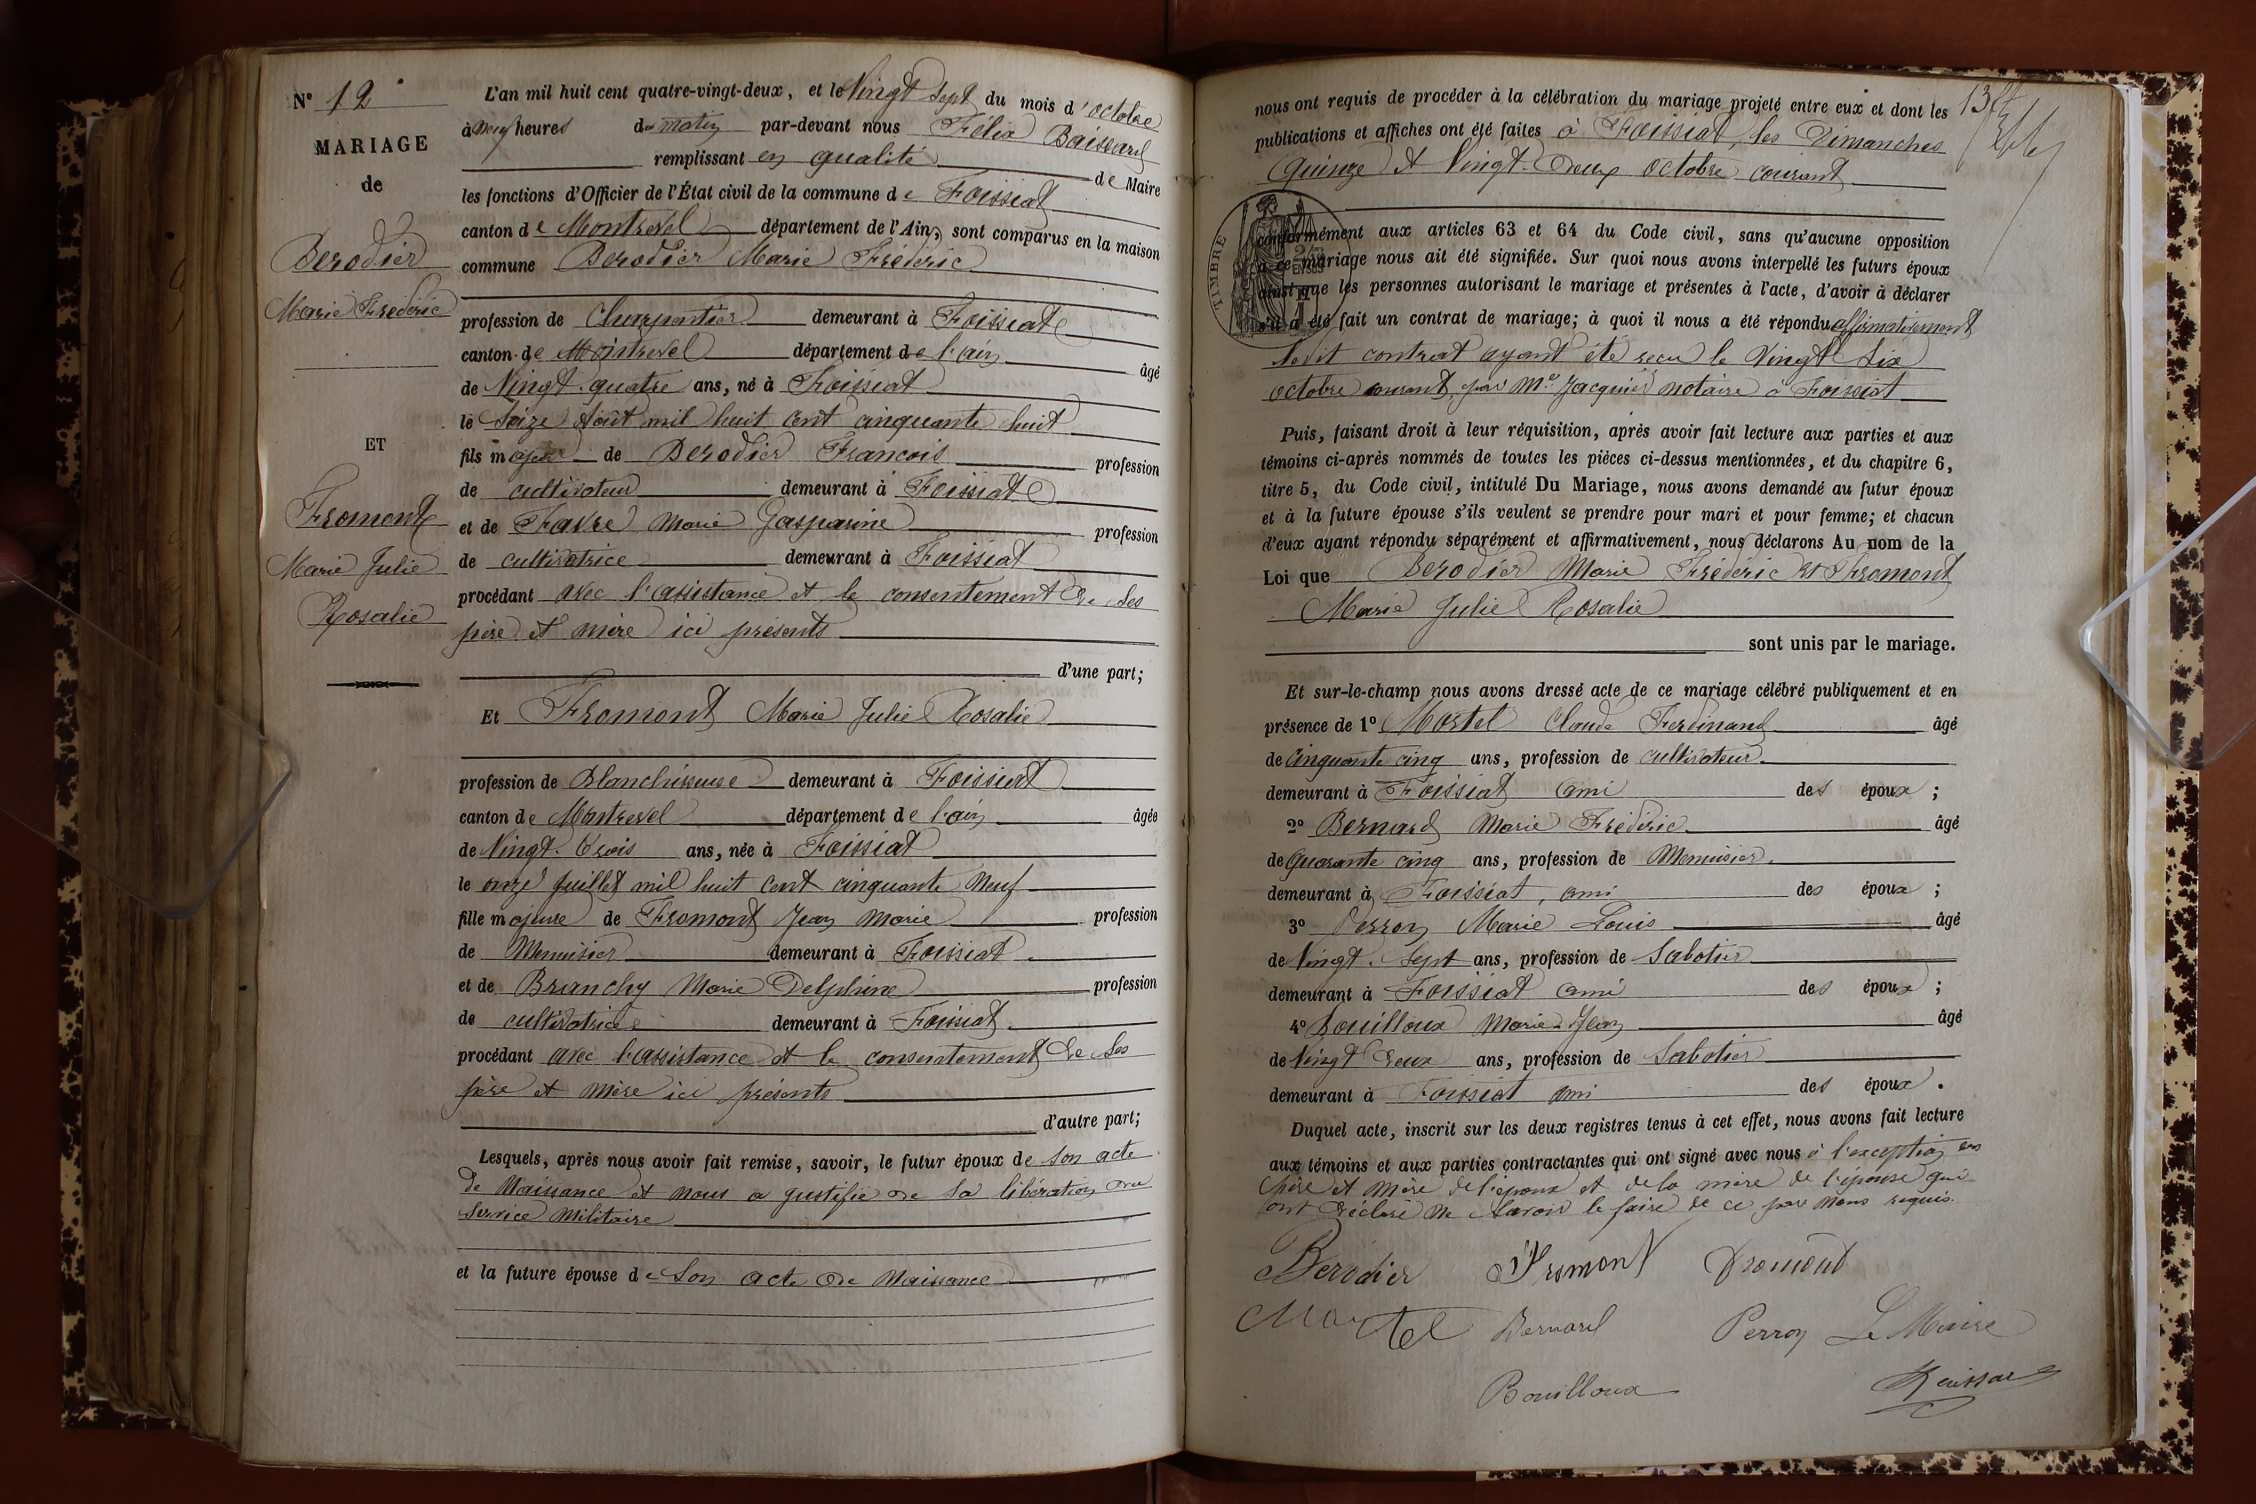 N° 12
MARIAGE
de
Berodier
Marie Fréderic
ET
Fromont
Marie Julie
Rosalie
L'an mil huit cent quatre-vingt-deux, et le Vingt Sept du mois d'octobre
à neuf heures du matin par-devant nous Félix Baissard
remplissant en qualité de Maire
les fonctions d'Officier de l'État civil de la commune de Foissiat
canton de Montrevel département de l'Ain, sont comparus en la maison
commune Berodier Marie Fréderic
profession de Charpentier demeurant à Foissiat
canton de Montrevel département de l'ain âgé
de Vingt-quatre ans, né à Foissiat
le Seize Août mil huit cent cinquante huit
fils majeur de Berodier Francois profession
de cultivateur demeurant à Foissiat
et de Favre Marie Gasparine profession
de cultivatrice demeurant à Foissiat
procédant avec l'assistance et le consentement de ses
père et mère ici présents
d'une part;
Et Fromont Marie Julie Rosalie
profession de Blanchisseuse demeurant à Foissiat
canton de Montrevel département de l'ain âgée
de Vingt-trois ans, née à Foissiat
le onze Juillet mil huit cent cinquante Neuf
fille majeure de Fromont Jean Marie profession
de Menuisier demeurant à Foissiat
et de Branchy Marie Delphine profession
de cultivatrice demeurant à Foissiat
procédant avec l'assistance et le consentement de ses
père et mère ici présents
d'autre part;
Lesquels, après nous avoir fait remise, savoir, le futur époux de son acte
de Naissance et nous a justifié de sa libération du
Service Militaire
et la future épouse de Son acte de Naissance
nous ont requis de procéder à la célébration du mariage projeté entre eux et dont les
publications et affiches ont été faites à Foissiat, les Dimanches
Quinze et Vingt-Deux octobre courant
TIMBRE
conformément aux articles 63 et 64 du Code civil, sans qu'aucune opposition
à ce mariage nous ait été signifiée. Sur quoi nous avons interpellé les futurs époux
ainsi que les personnes autorisant le mariage et présentes à l'acte, d'avoir à déclarer
s'il a été fait un contrat de mariage; à quoi il nous a été répondu affirmativement
ledit contrat ayant été recu le Vingt Six
octobre courant par Me Jacquier notaire à Foissiat
Puis, faisant droit à leur réquisition, après avoir fait lecture aux parties et aux
témoins ci-après nommés de toutes les pièces ci-dessus mentionnées, et du chapitre 6,
titre 5, du Code civil, intitulé Du Mariage, nous avons demandé au futur époux
et à la future épouse s'ils veulent se prendre pour mari et pour femme; et chacun
d'eux ayant répondu séparément et affirmativement, nous déclarons Au nom de la
Loi que Berodier Marie Fréderic et Fromont
Marie Julie Rosalie
sont unis par le mariage.
Et sur-le-champ nous avons dressé acte de ce mariage célébré publiquement et en
présence de 1° Martel Claude Ferdinand âgé
de Cinquante cinq ans, profession de cultivateur
demeurant à Foissiat ami des époux ;
2° Bernard Marie Fréderic âgé
de Quarante cinq ans, profession de Menuisier
demeurant à Foissiat, ami des époux ;
3° Perron Marie Louis âgé
de Vingt-Sept ans, profession de Sabotier
demeurant à Foissiat ami des époux ;
4° Bouilloux Marie-Jean âgé
de Vingt Deux ans, profession de Sabotier
demeurant à Foissiat ami des époux.
Duquel acte, inscrit sur les deux registres tenus à cet effet, nous avons fait lecture
aux témoins et aux parties contractantes qui ont signé avec nous à l'exception des
père et mère de l'époux et de la mère de l'épouse qui
ont déclaré ne savoir le faire de ce par Nous requis
Berodier Fromont Fromont
Martel Bernard Perron Le Maire
Bouilloux Baissard